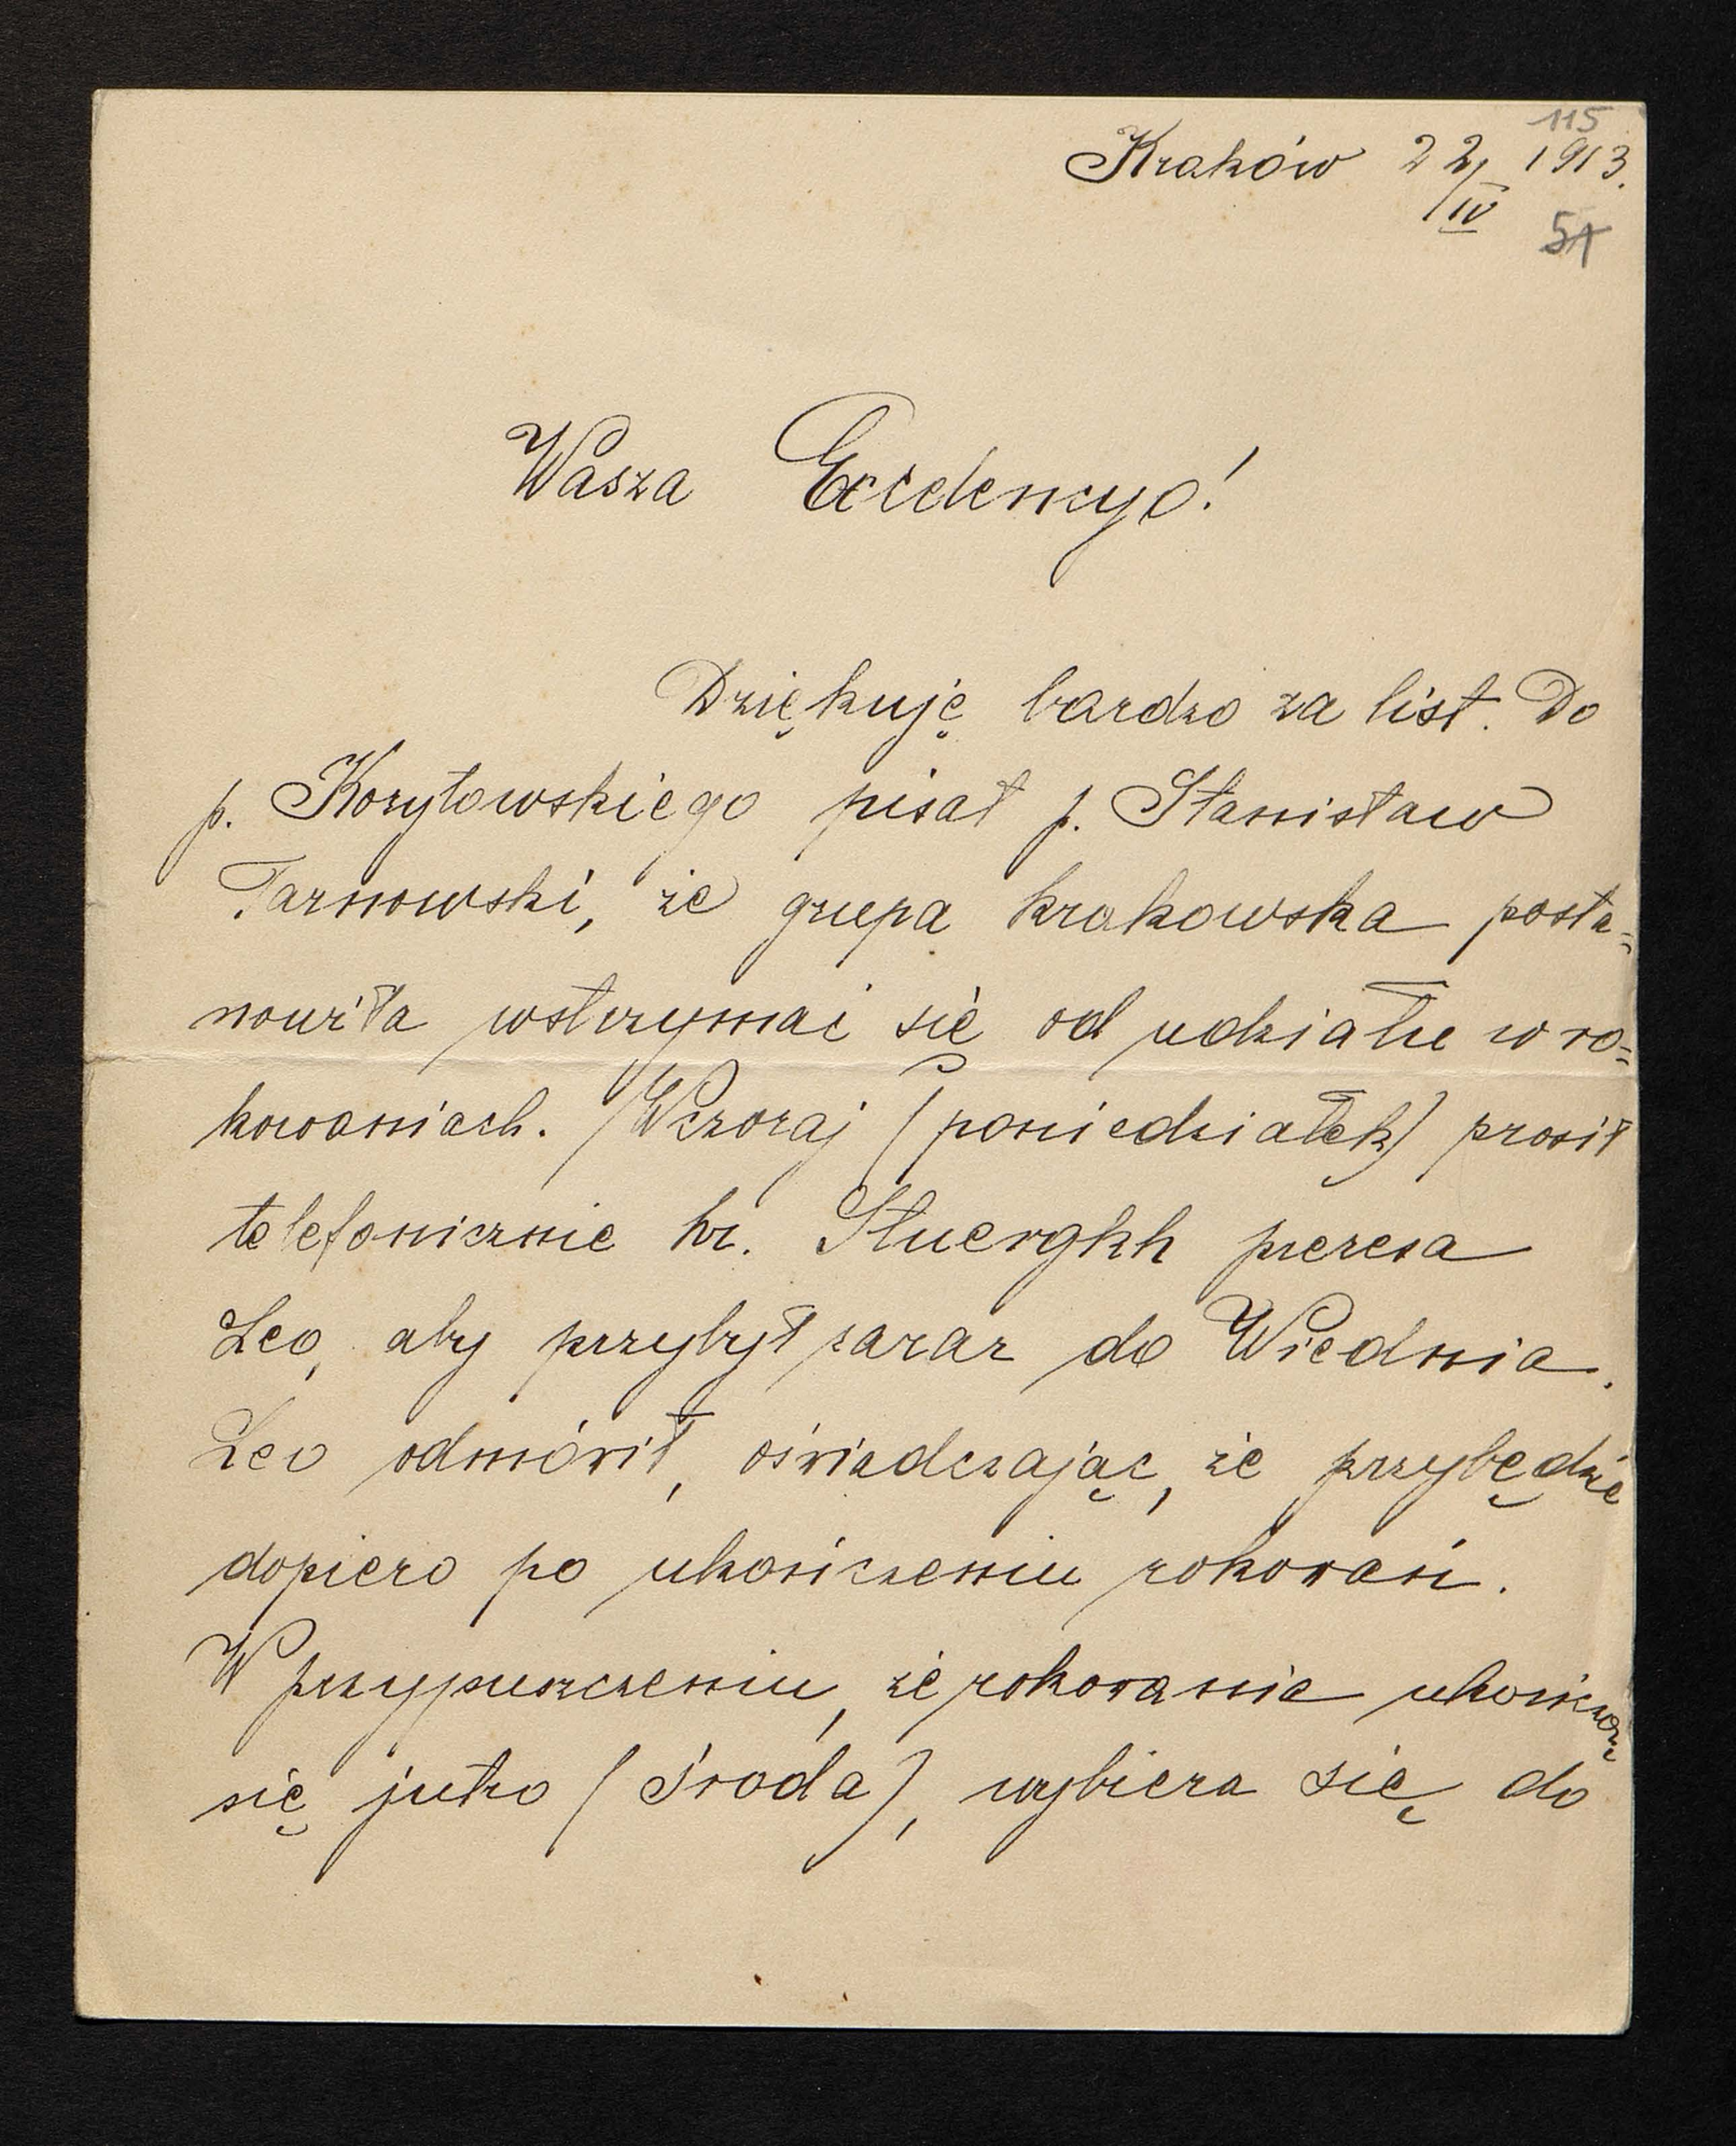 115
Kraków 22/IV 1913.
51
Wasza Excelencyo!
Dziękuję bardzo za list. Do
p. Korytowskiego pisał p. Stanisław
Tarnowski, że grupa krakowska posta=
nowiła wstrzymać się od udziału w ro=
kowaniach. Wczoraj (poniedziałek) prosił
telefonicznie hr. Stuergkh prezesa
Leo, aby przybył zaraz do Wiednia.
Leo odmówił, oświadczając, że przybędzie
dopiero po ukończeniu rokowań.
W przypuszczeniu, że rokowania ukończą
się jutro (środa), wybiera się do